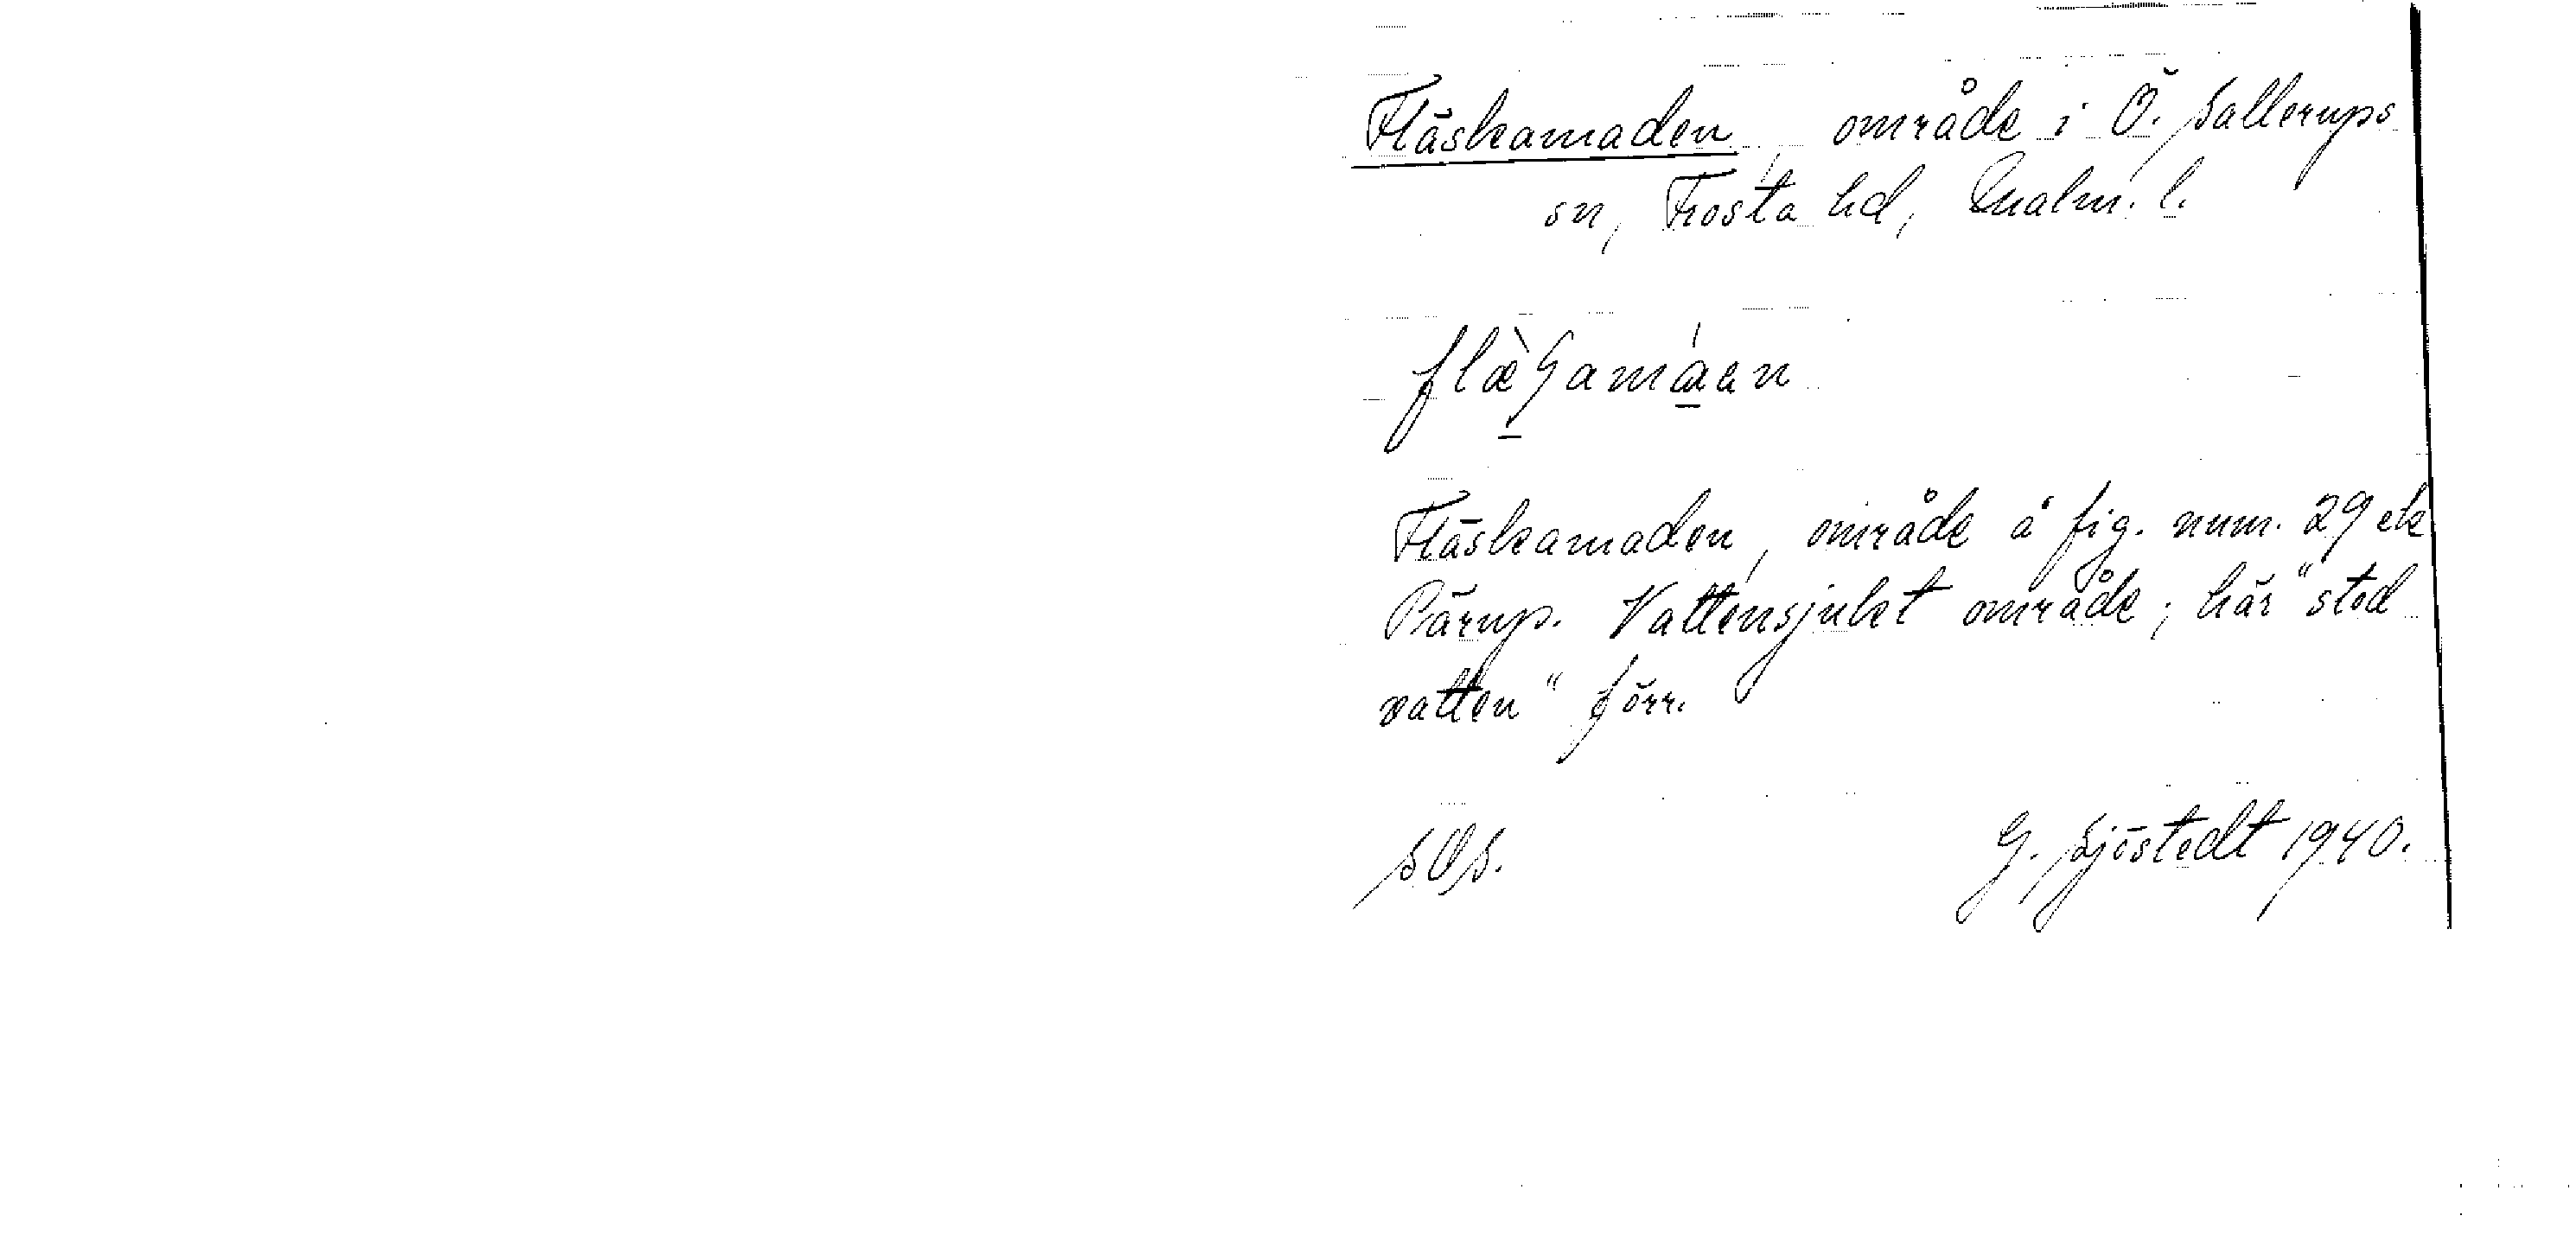 Fläskamaden, område i Ö. Sallerups
sn, Frosta hd, Malm. l.
Fläskamaden, område å fig. num. 29 ek
Pärup. Vattensjukt område; här "stod
vatten" förr.
SOS. G. Sjöstedt 1940.